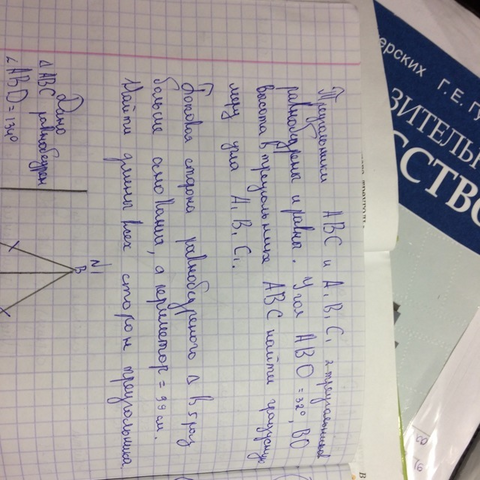 Треугольники ABC и A₁B₁C₁ 2 треугольника
равнобедрены и равны. Угол ABO = 32°, BO
высота в треугольнике ABC найти градусную
меру угла A₁B₁C₁.
Боковая сторона равнобедреного Δ в 5 раз
больше основания, а периметр = 99 см.
Найти длины всех сторон треугольника
Дано
Δ ABC равнобедрен
∠ABD = 134°
N1
B
ерских Г. Е. Гу
ЗИТЕЛЬН
ССТВО
60
16